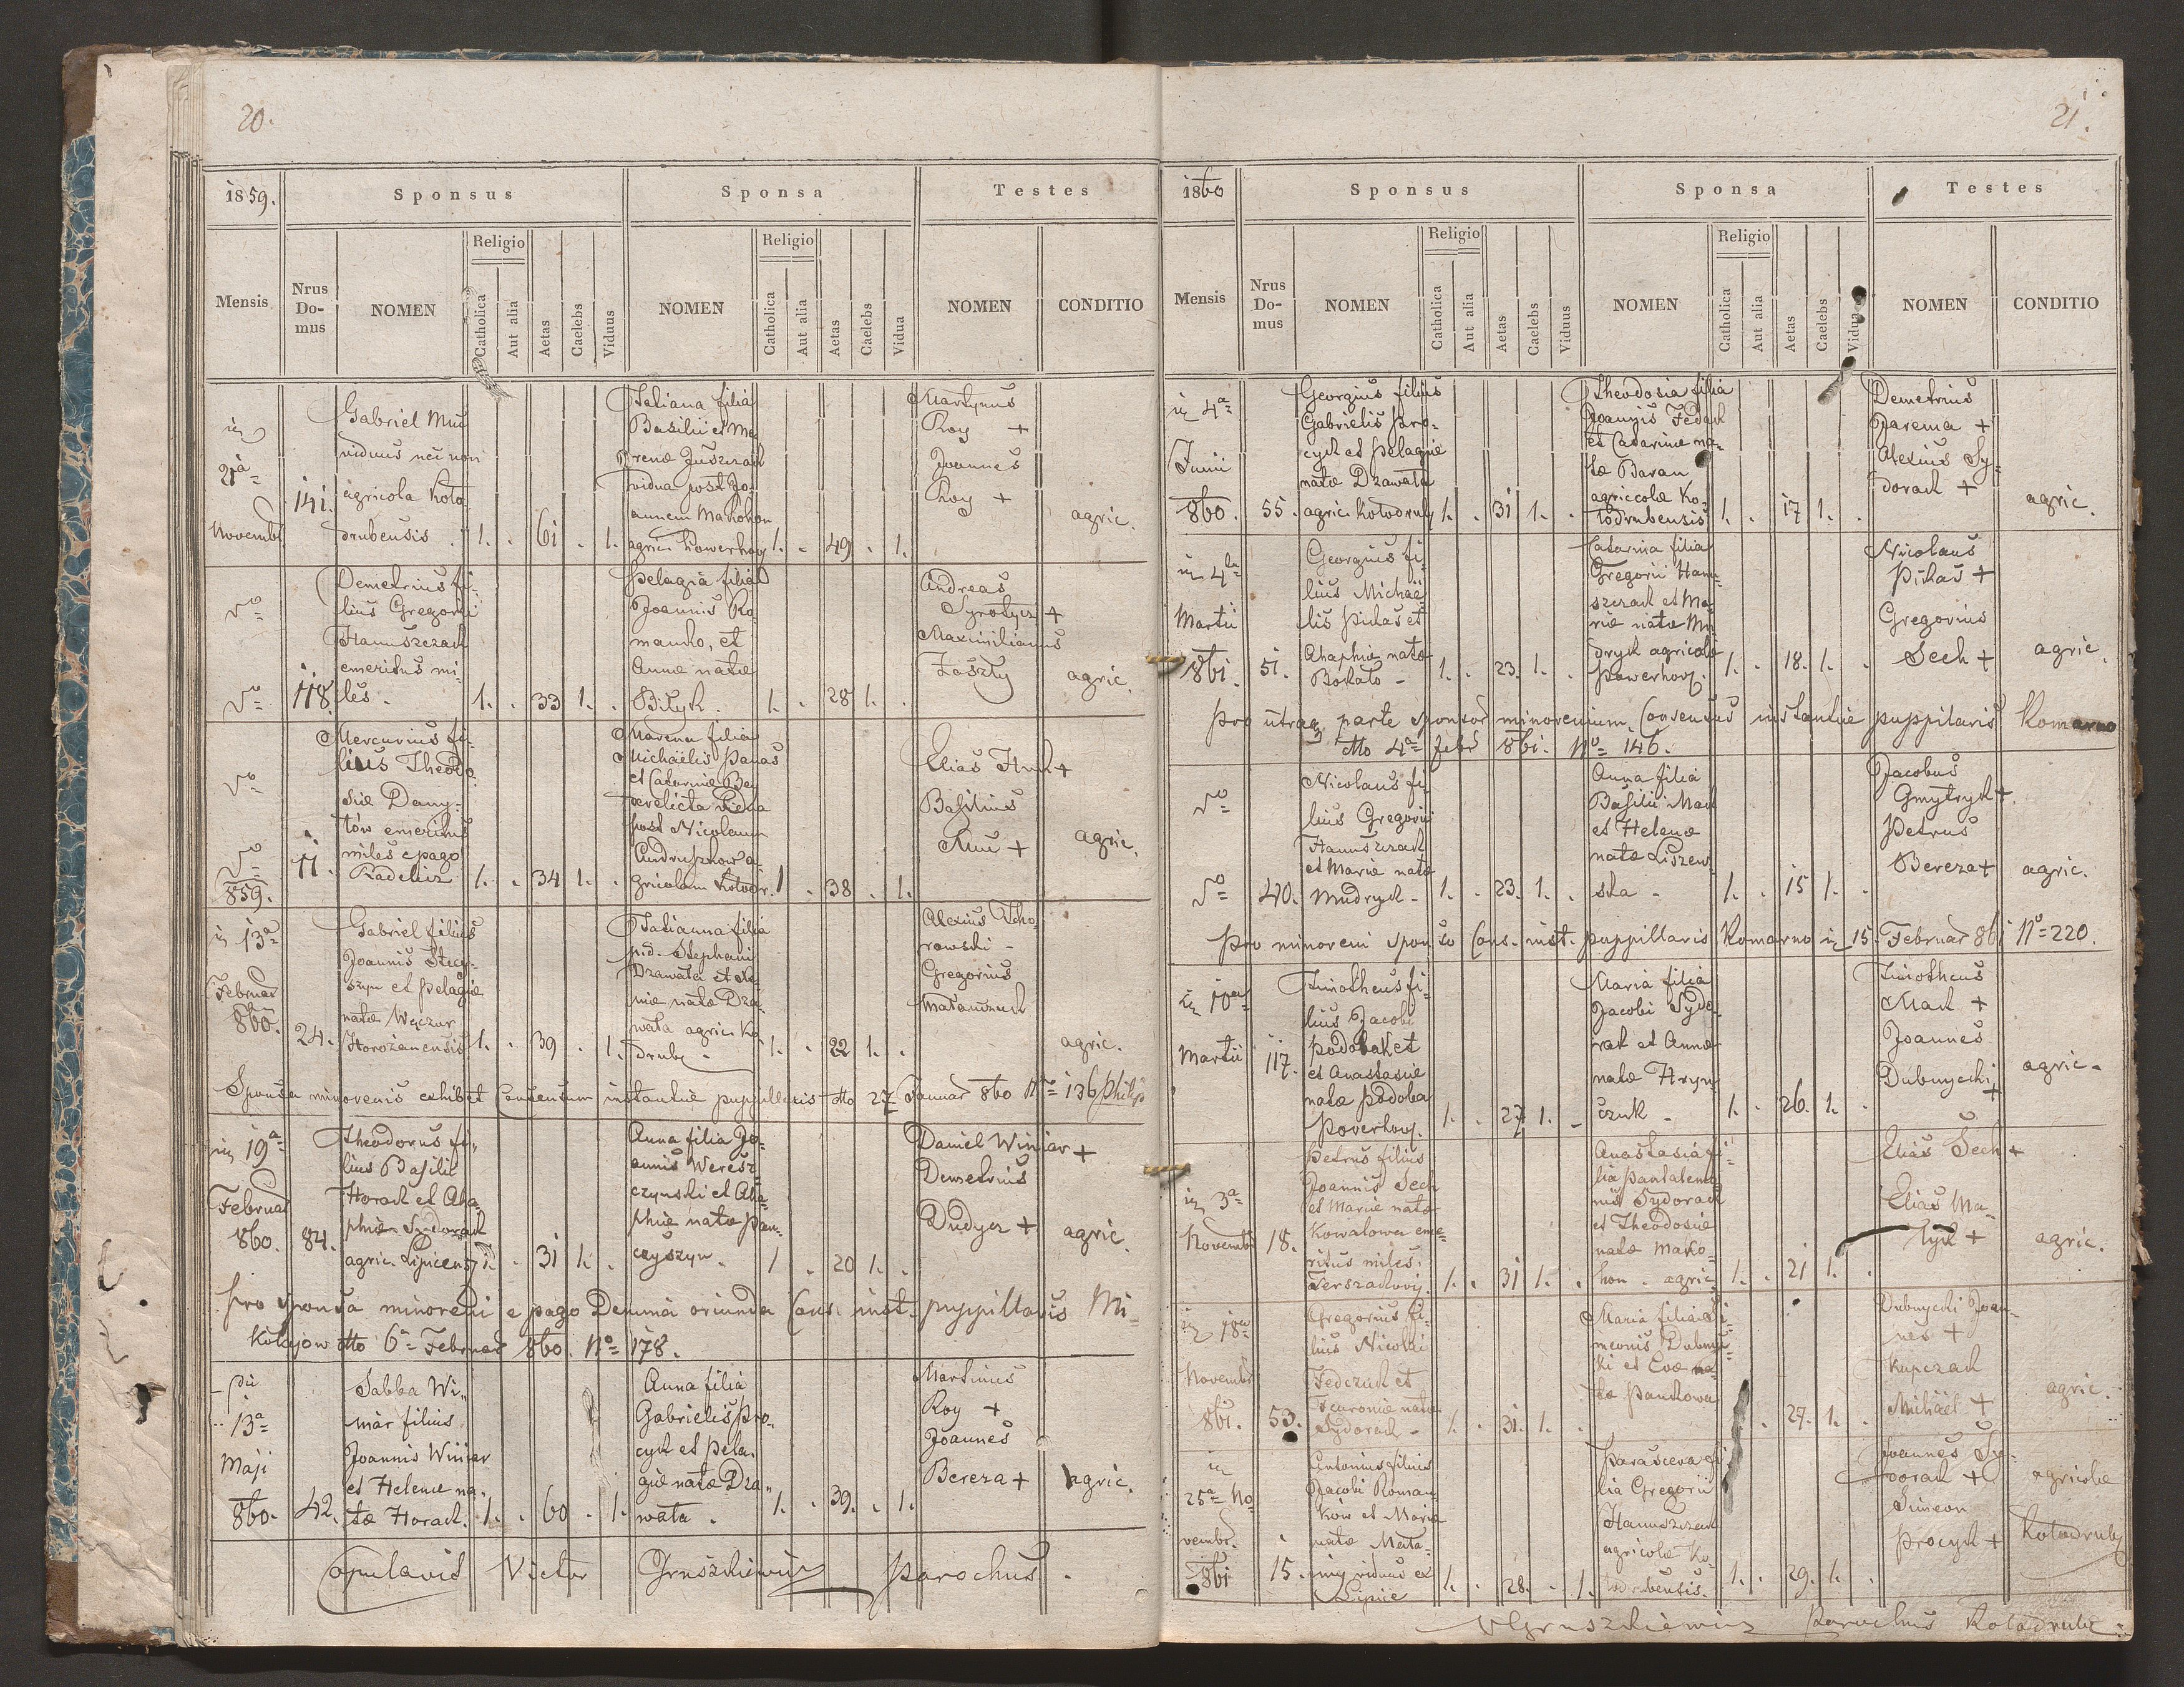 20.
1859.
Sponsus
Sponsa
Testes
Mensis
Nrus Domus
NOMEN
Religio
Catholica
Aut alia
Aetas
Caelebs
Viduus
NOMEN
Religio
Catholica
Aut alia
Aetas
Caelebs
Vidua
NOMEN
CONDITIO
21a
Novembr.
141.
Gabriel
viduus nec non
agricola Koło-
drubensis
1. . 61 . 1.
Tatiana filia
Basilii et Ma-
vidua post Jo-
annem Makohon
agric. Powerhov
1. . 49 . 1.
Martynus
Roy +
Joannes
Roy +
agric.
118.
Demetrius fi-
lius Gregorii
Hanuszczack
emeritus mi-
les.
1. . 33 1. .
Pelagia filia
Joannis Ro-
manko, et
Annæ natæ
Biłyk.
1. . 28 1. .
Andreas
Syrotycz +
Maximilianus
Zaszły
agric.
859.
11.
Mercurius fi-
lius Theodo-
siæ Dany-
tów emeritus
miles e pago
Radelicz
1. . 34 1. .
Marena filia
Michaelis Panas
et Catarinæ
derelicta vidua
post Nicolaum
Andruszkow a-
gricolam Kołodr.
1 . 38 . 1.
Elias Huk +
Basilius
+
agric.
in 13a
Februar
860.
24.
Gabriel filius
Joannis Stecy-
szyn et Pelagiæ
natæ Węczur
Horożanensis
1. . 39 . 1.
Tatianna filia
p.d. Stephani
Dzawała et
natæ Dza-
wała agric. Ko-
drub.
1. . 22 1. .
Alexius
rowski -
Gregorius
agric.
Sponsa minorenis exhibet Consensum instantiæ puppillaris dtto 27 Januar 860 No 136
in 19a
Februar
860.
84.
Theodorus fi-
lius Basilii
Horack et Aha-
phiæ Sydorack
agric. Lipicens
1. . 31 1. .
Anna filia Jo-
annis Weresz-
czynski et Aha-
phiæ natæ Pan-
czyszyn.
1 . 20 1. .
Daniel Winiar +
Demetrius
Dudycz +
agric.
Pro sponsa minoreni e pago Demnia oriunda Cons. inst. puppillaris Mi-
kołajow dtto 6a Februar 860. No 178.
13a
Maji
860.
42.
Sabba Wi-
niar filius
Joannis Winiar
et Helenæ na-
tæ Horack.
1. . 60 . 1.
Anna filia
Gabrielis Pro-
cyck et Pela-
giæ natæ Dza-
wała.
1. . 39. . 1.
Martinus
Roy +
Joannes
Bereza +
agric.
Copulavit Victor Gruszkiewicz Parochus.
21.
1860
Sponsus
Sponsa
Testes
Mensis
Nrus Domus
NOMEN
Religio
Catholica
Aut alia
Aetas
Caelebs
Viduus
NOMEN
Religio
Catholica
Aut alia
Aetas
Caelebs
Vidua
NOMEN
CONDITIO
in 4a
Junii
860.
55.
Georgius filius
Gabrielis Pro-
cyck et Pelagiæ
natæ Dzawała
agric. Kołodrub
1. . 31 1. .
Theodosia filia
Joannis Fedack
et Catarinæ na-
tæ Baran
agriccolæ Ko-
łodrubensis
1. . 17 1. .
Demetrius
Jarema +
Alexius Sy-
dorack +
agric.
in 4ta
Martii
861.
51.
Georgius fi-
lius Michaë-
lis Pikas et
Ahaphiæ natæ
Bokało -
1. . 23. 1. .
Catarina filia
Gregorii Hanu-
szczack et Ma-
riæ natæ Mu-
dryk agricolæ
Powerhov.
1. . 18. 1. .
Nicolaus
Pikas +
Gregorius
Sech +
agric.
Pro utraq parte sponsor minorenium Consensus instantiæ puppilaris Komarno
dtto 4a Febr 861. No 146.
40.
Nicolaus fi-
lius Gregorii
Hanuszczack
et Mariæ natæ
Mudryck -
1. . 23. 1. .
Anna filia
Basilii Mack
et Helenæ
natæ Liszew-
ska -
1. . 15 1. .
Jacobus
Gmytryk +
Petrus
Bereza +
agric.
Pro minoreni sponso Cons. inst. puppillaris Komarno in 15. Februar 861 No 220.
in 10a
Martii
117.
Timotheus fi-
lius Jacobi
Podobak et
et Anastasiæ
natæ Podoba
Poverhov.
1. . 27 1. .
Maria filia
Jacobi Sydo-
rak et Annæ
natæ Hryn-
czuk -
1. . 26. 1. .
Timotheus
Mack +
Joannes
Dubnycki +
agric.
in 3a
Novembr
18.
Petrus filius
Joannis Sech
et Mariæ natæ
Kowalowa eme-
ritus miles.
1. . 31 1. .
Anastasia fi-
lia Pantalemo-
nis Sydorack
et Theodosiæ
natæ Mako-
hon. agric
1. . 21 1. .
Elias Sech +
Elias Ma-
łyk +
agric.
in 18a
Novembr
861.
53.
Gregorius fi-
lius Nicolai
Fedczuk et
natæ
Sydorack -
1. . 31. 1. .
Maria filia Si-
meonis Dubnyc-
ki et Evæ na-
tæ Pankowa
. 27. 1. .
Dubnycki Joan-
nes +
Kupczack
Mihäel +
agric.
in
25a No-
vembr.
861
15.
Antonius filius
Jacobi Roman-
ków et Mariæ
natæ Mata-
viduus ex
Lipice
1. . 28. . 1.
Parasceva fi-
lia Gregorii
Hanuszczack
agricolæ Ko-
łodrubensis.
1. . 29. 1. .
Joannes Sy-
dorack +
Simeon
Procyk +
agricolæ
Kołodrub
VGruszkiewicz Parochus Kołodrub